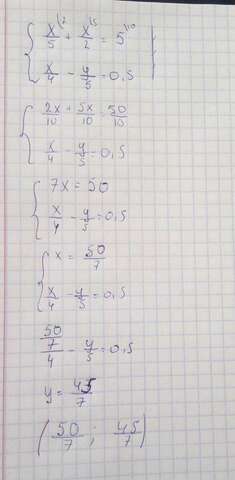 x/5 \2 + x/2 \5 = 5 \10
x/4 - y/5 = 0,5
2x/10 + 5x/10 = 50/10
x/4 - y/5 = 0,5
7x = 50
x/4 - y/5 = 0,5
x = 50/7
x/4 - y/5 = 0,5
50/7/4 - y/5 = 0,5
y = 45/7
(50/7 ; 45/7)